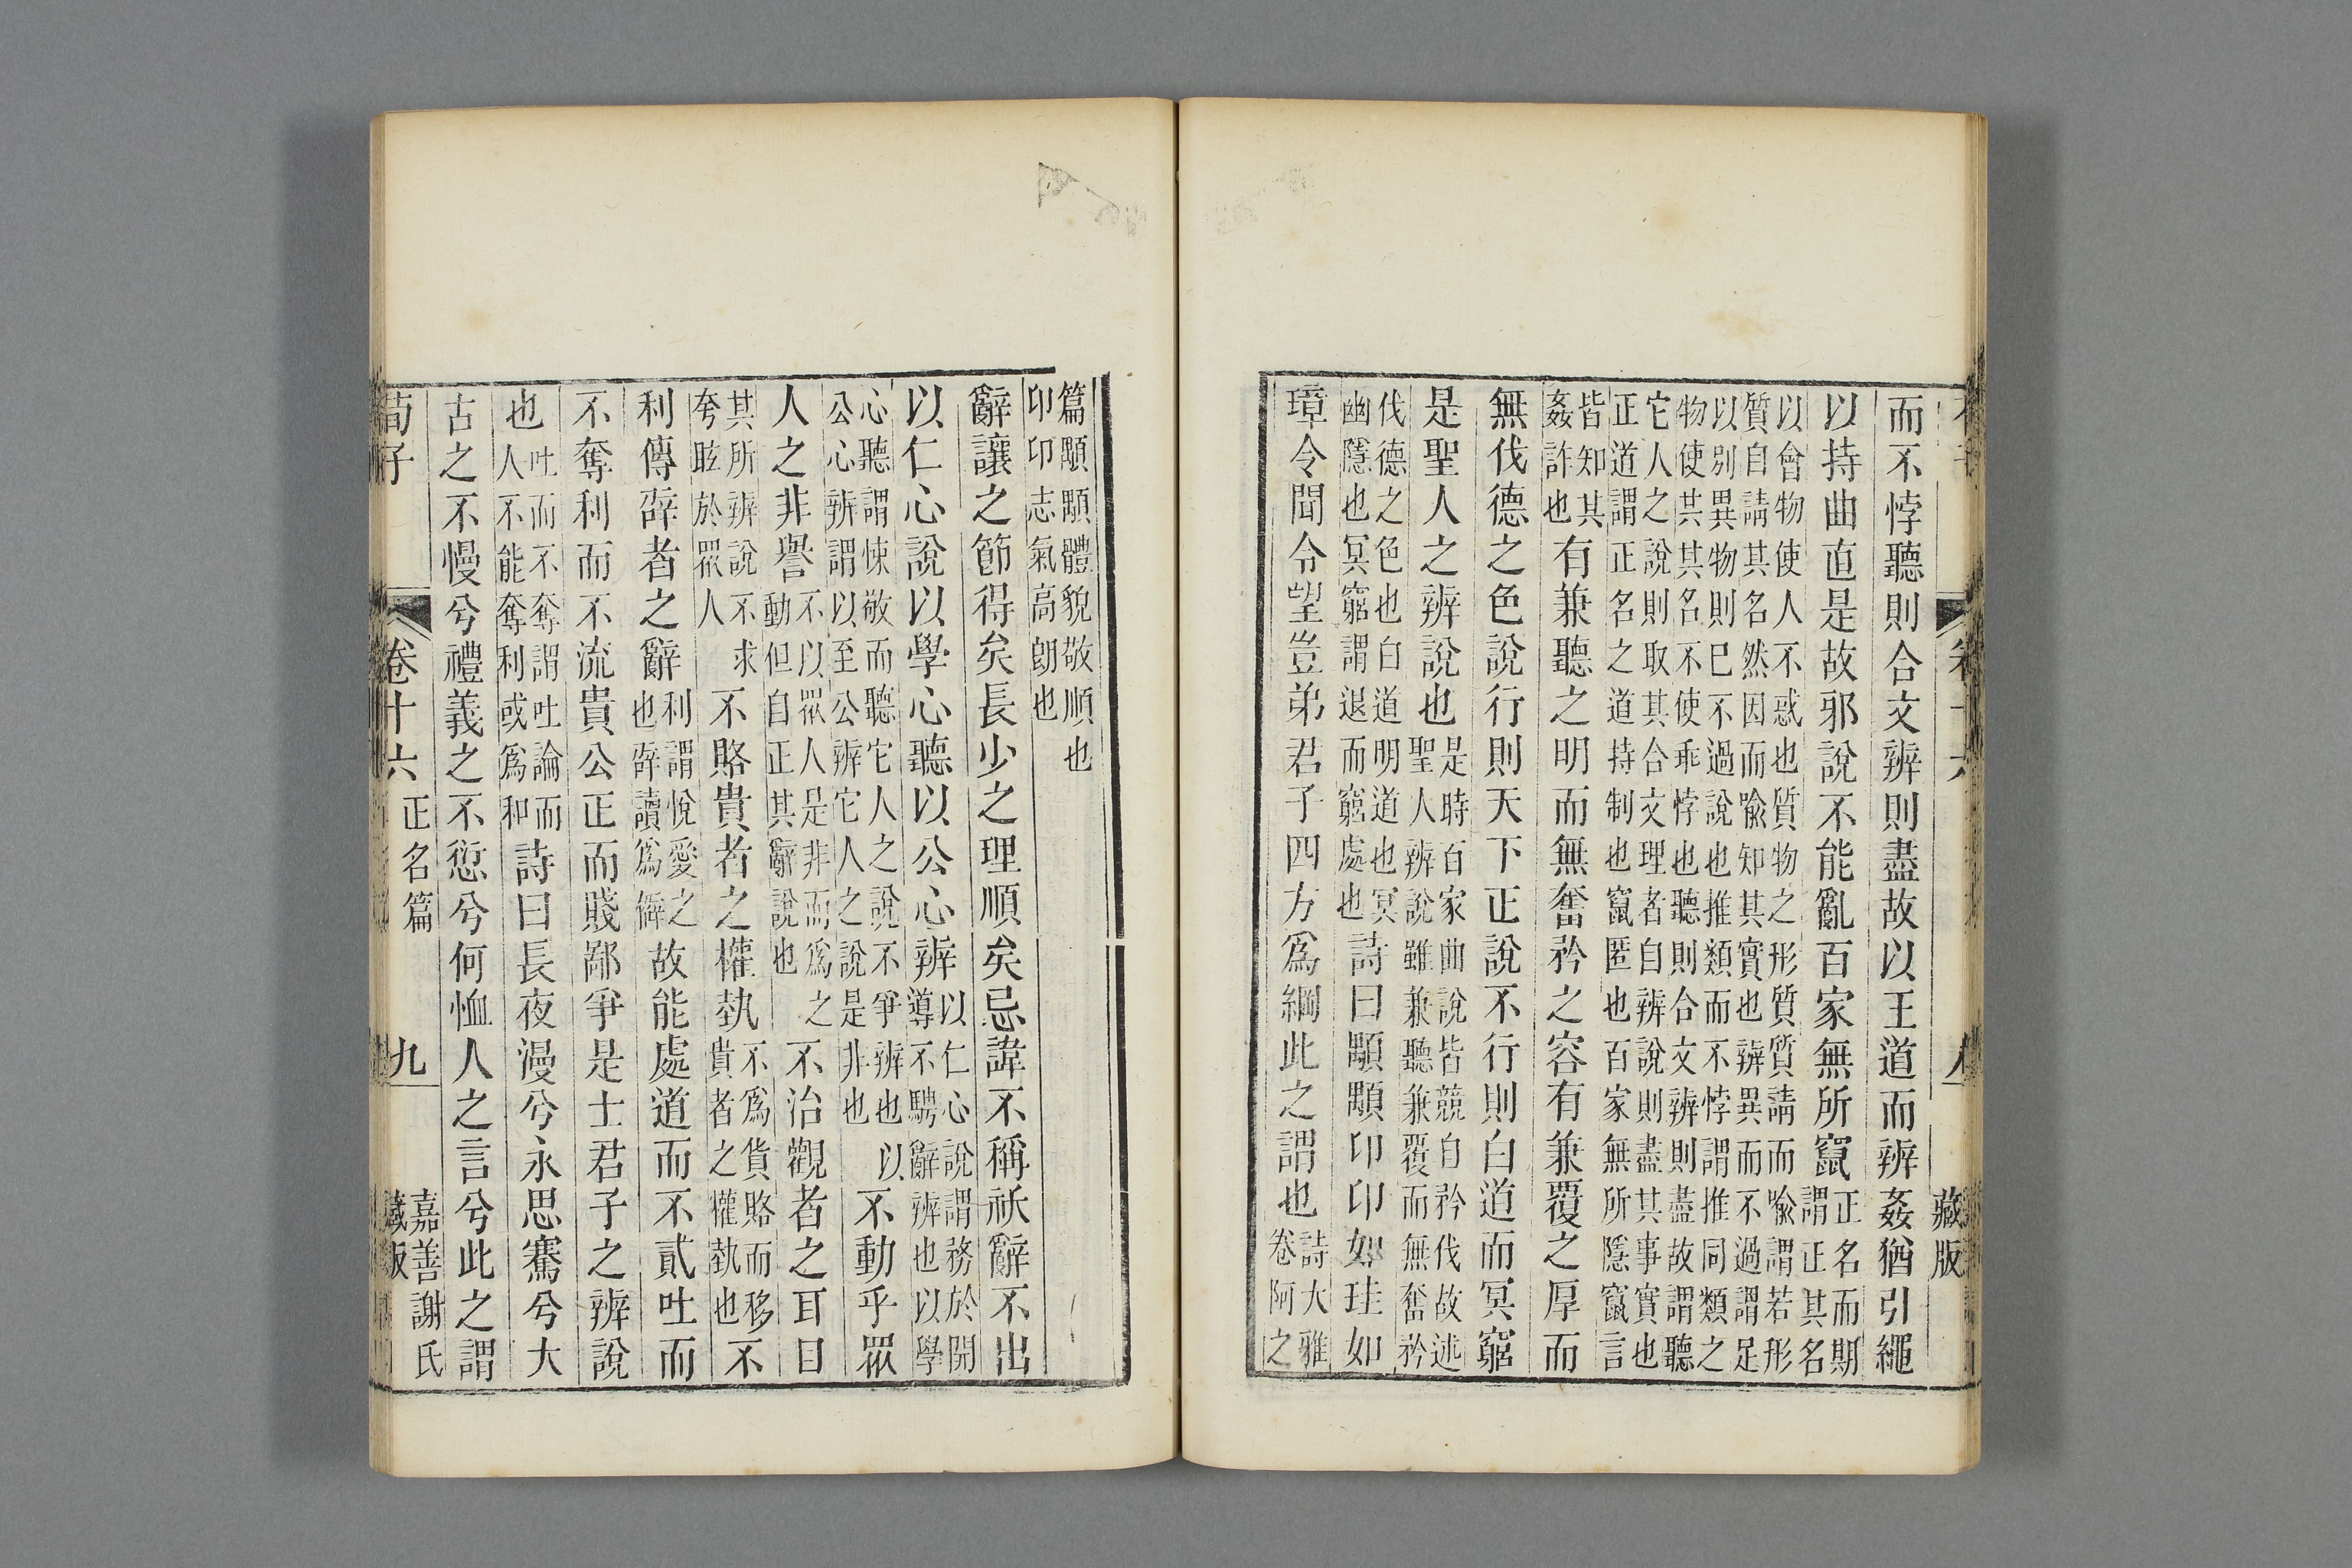 而不悖聽則合文辨則盡故以王道而辨姦猶引繩
以持曲直是故邪說不能亂百家無所竄正名而期
謂正其名
以會物使人不惑也質物之形質質請而喻謂若形
質自請其名然因而喻知其實也辨異而不過謂足
以別異物則已不過說也推類而不悖謂推同類之
物使其其名不使乖悖也聽則合文辨則盡故謂聽
它人之說則取其合文理者自辨說則盡其事實也
正道謂正名之道持制也竄匿也百家無所隱竄言
皆知其
姦詐也有兼聽之明而無奮矜之容有兼覆之厚而
無伐德之色說行則天下正說不行則白道而冥窮
是聖人之辨說也是時百家曲說皆競自矜伐故述
聖人辨說雖兼聽兼覆而無奮矜
伐德之色也白道明道也冥
幽隱也冥窮謂退而窮處也詩曰顒顒卬卬如珪如
璋令聞令望豈弟君子四方爲綱此之謂也詩大雅
卷阿之
藏版
篇顒顒體貌敬順也
卬卬志氣高朗也
辭讓之節得矣長少之理順矣忌諱不稱祅辭不出
以仁心說以學心聽以公心辨以仁心說謂務於開
導不騁辭辨也以學
心聽謂悚敬而聽它人之說不爭辨也以
公心辨謂以至公辨它人之說是非也不動乎眾
人之非譽不以眾人是非而爲之
動但自正其辭說也不治觀者之耳目
其所辨說不求
夸眩於眾人不賂貴者之權埶不爲貨賂而移
貴者之權埶也不
利傳辟者之辭利謂悅愛之
也辟讀爲僻故能處道而不貳吐而
不奪利而不流貴公正而賤鄙爭是士君子之辨說
也吐而不奪謂吐論而
人不能奪利或爲和詩曰長夜漫兮永思騫兮大
古之不慢兮禮義之不愆兮何恤人之言兮此之謂
荀子 卷十六 正名篇 九 嘉善謝氏
藏版